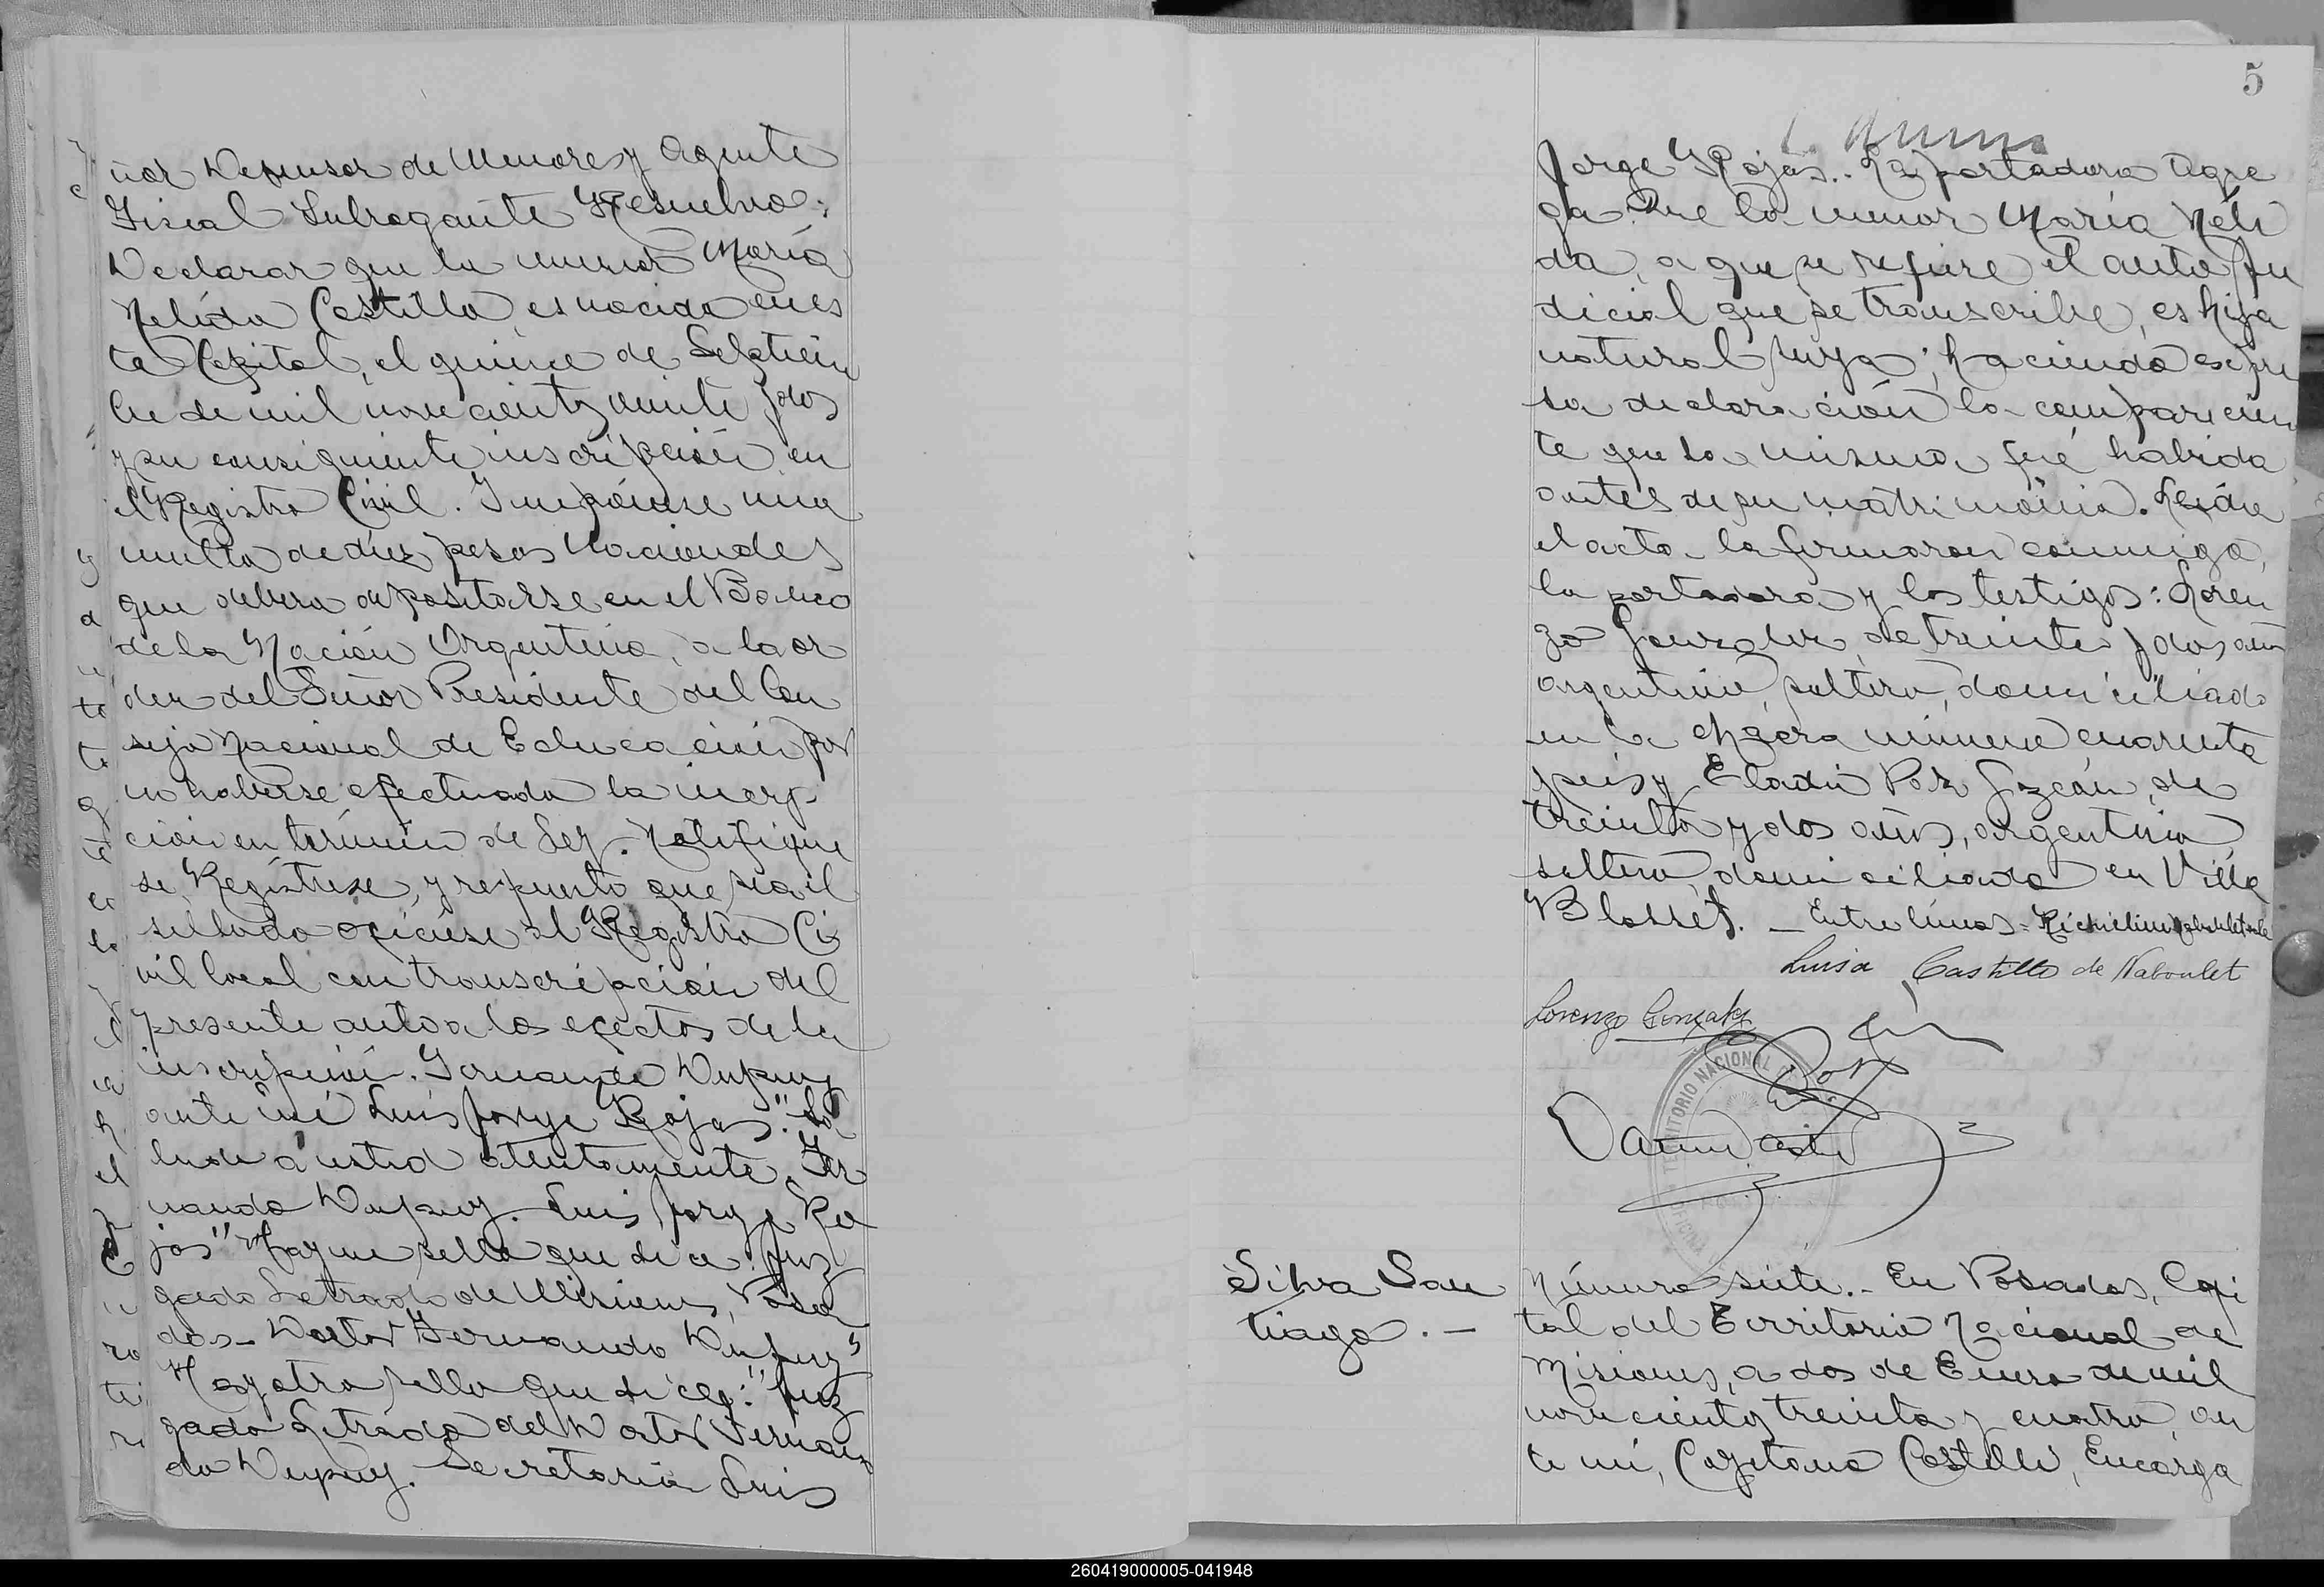 ñor Defensor de Menores y Agente
Fiscal Subrogante Resuelvo:
Declarar que la menor María
Nelida Castillo, es nacida en es
ta Capital, el quince de Septiem
bre de mil novecientos veinte y dos
y su consiguiente inscripción en
el Registro Civil. Impónese una
multa de diez pesos nacionales
que debera depositarse en el Banco
de la Nación Argentina, a la or
den del Señor Presidente del Con
sejo Nacional de Educación por
no haberse efectuado la inscrip-
ción en término de Ley. Notifique
se, Regístrese, y repuesto que sea el
sellado ofíciese al Registro Ci
vil local con transcripción del
presente auto a los efectos de la
inscripción. Fernando Dupuy
ante mí Luis Jorge Rojas". Sa
luda á usted atentamente. Fer
nando Dupuy. Luis Jorge Ro
jas" Hay un sello que dice: Juz
gado Letrado de Misiones, Posa
das- Doctor Fernando Dupuy"
Hay otro sello que dice: "Juz
gado Letrado del Doctor Fernan
do Dupuy. Secretaria Luis
5
Jorge Rojas.- La portadora agre
ga: Que la menor María Néli
da, a que se refiere el auto Ju
dicial que se transcribe, es hija
natural suya; haciendo expre
sa declaración la comparecien
te que la misma fué habida
antes de su matrimonio. Leida
el acta la firmaron conmigo,
la portadora y los testigos: Loren
zo Gonzalez, de treinta y dos años
argentino, soltero, domiciliado
en la chacra número cuarenta
y seis y Eladio, de
treinta y dos años, argentino,
soltero, domiciliado en Villa
Blosset. - Entre líneas=
Luisa Castillo de Naboulet
Lorenzo Gonzalez
TERRITORIO NACIONAL
Silva San
tiago. -
Número siete.- En Posadas, Capi
tal del Territorio Nacional de
Misiones, a dos de Enero de mil
novecientos treinta y cuatro, an
te mí, Cayetano Castelli, Encarga
260419000005-041948